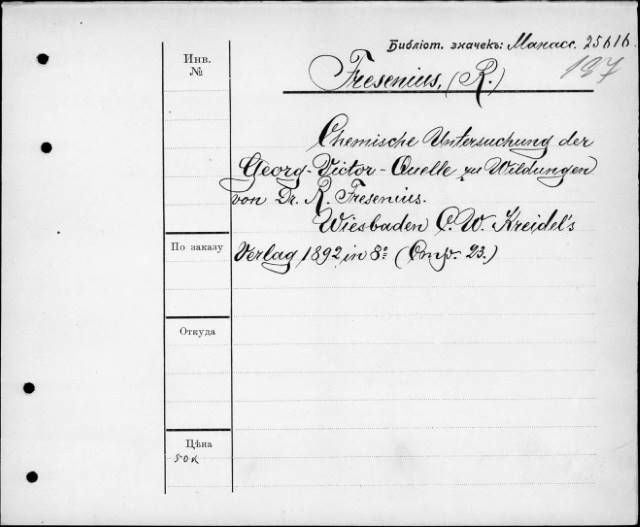 Библіот. значекъ: Манасс. 25616.
197
Инв.
№
Fresenius, (R.)
Chemische Untersuchung der
Georg-Victor-Quelle zu Wildungen
von Dr. R. Fresenius.
Wiesbaden C. W. Kreidel's
По заказу
Verlag 1892 in 8º (Стр. 23.)
Откуда
Цѣна
50к